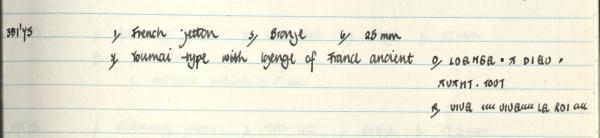 381'45 1, French jetton 5, Bronze 6, 25 mm
7, Tournai type with lozenge of France ancient 0, LOEMGE · A DIEU ·
AVANT · TOUT
R, VIVE «« VIVE«« LE ROI ««